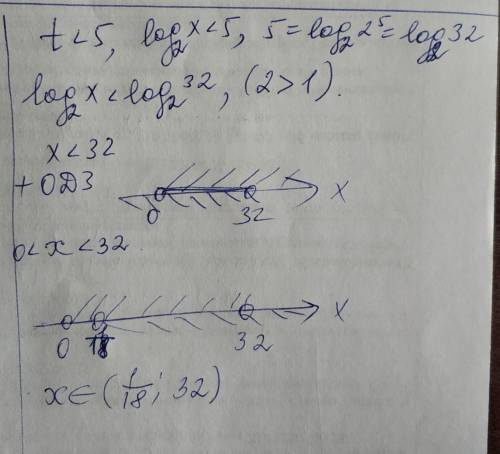 t < 5, log₂x < 5, 5 = log₂2⁵ = log₂32
log₂x < log₂32, (2 > 1).
x < 32
+ ОДЗ
0 32 x
0 < x < 32
0 1/18 32 x
x ∈ (1/18; 32)